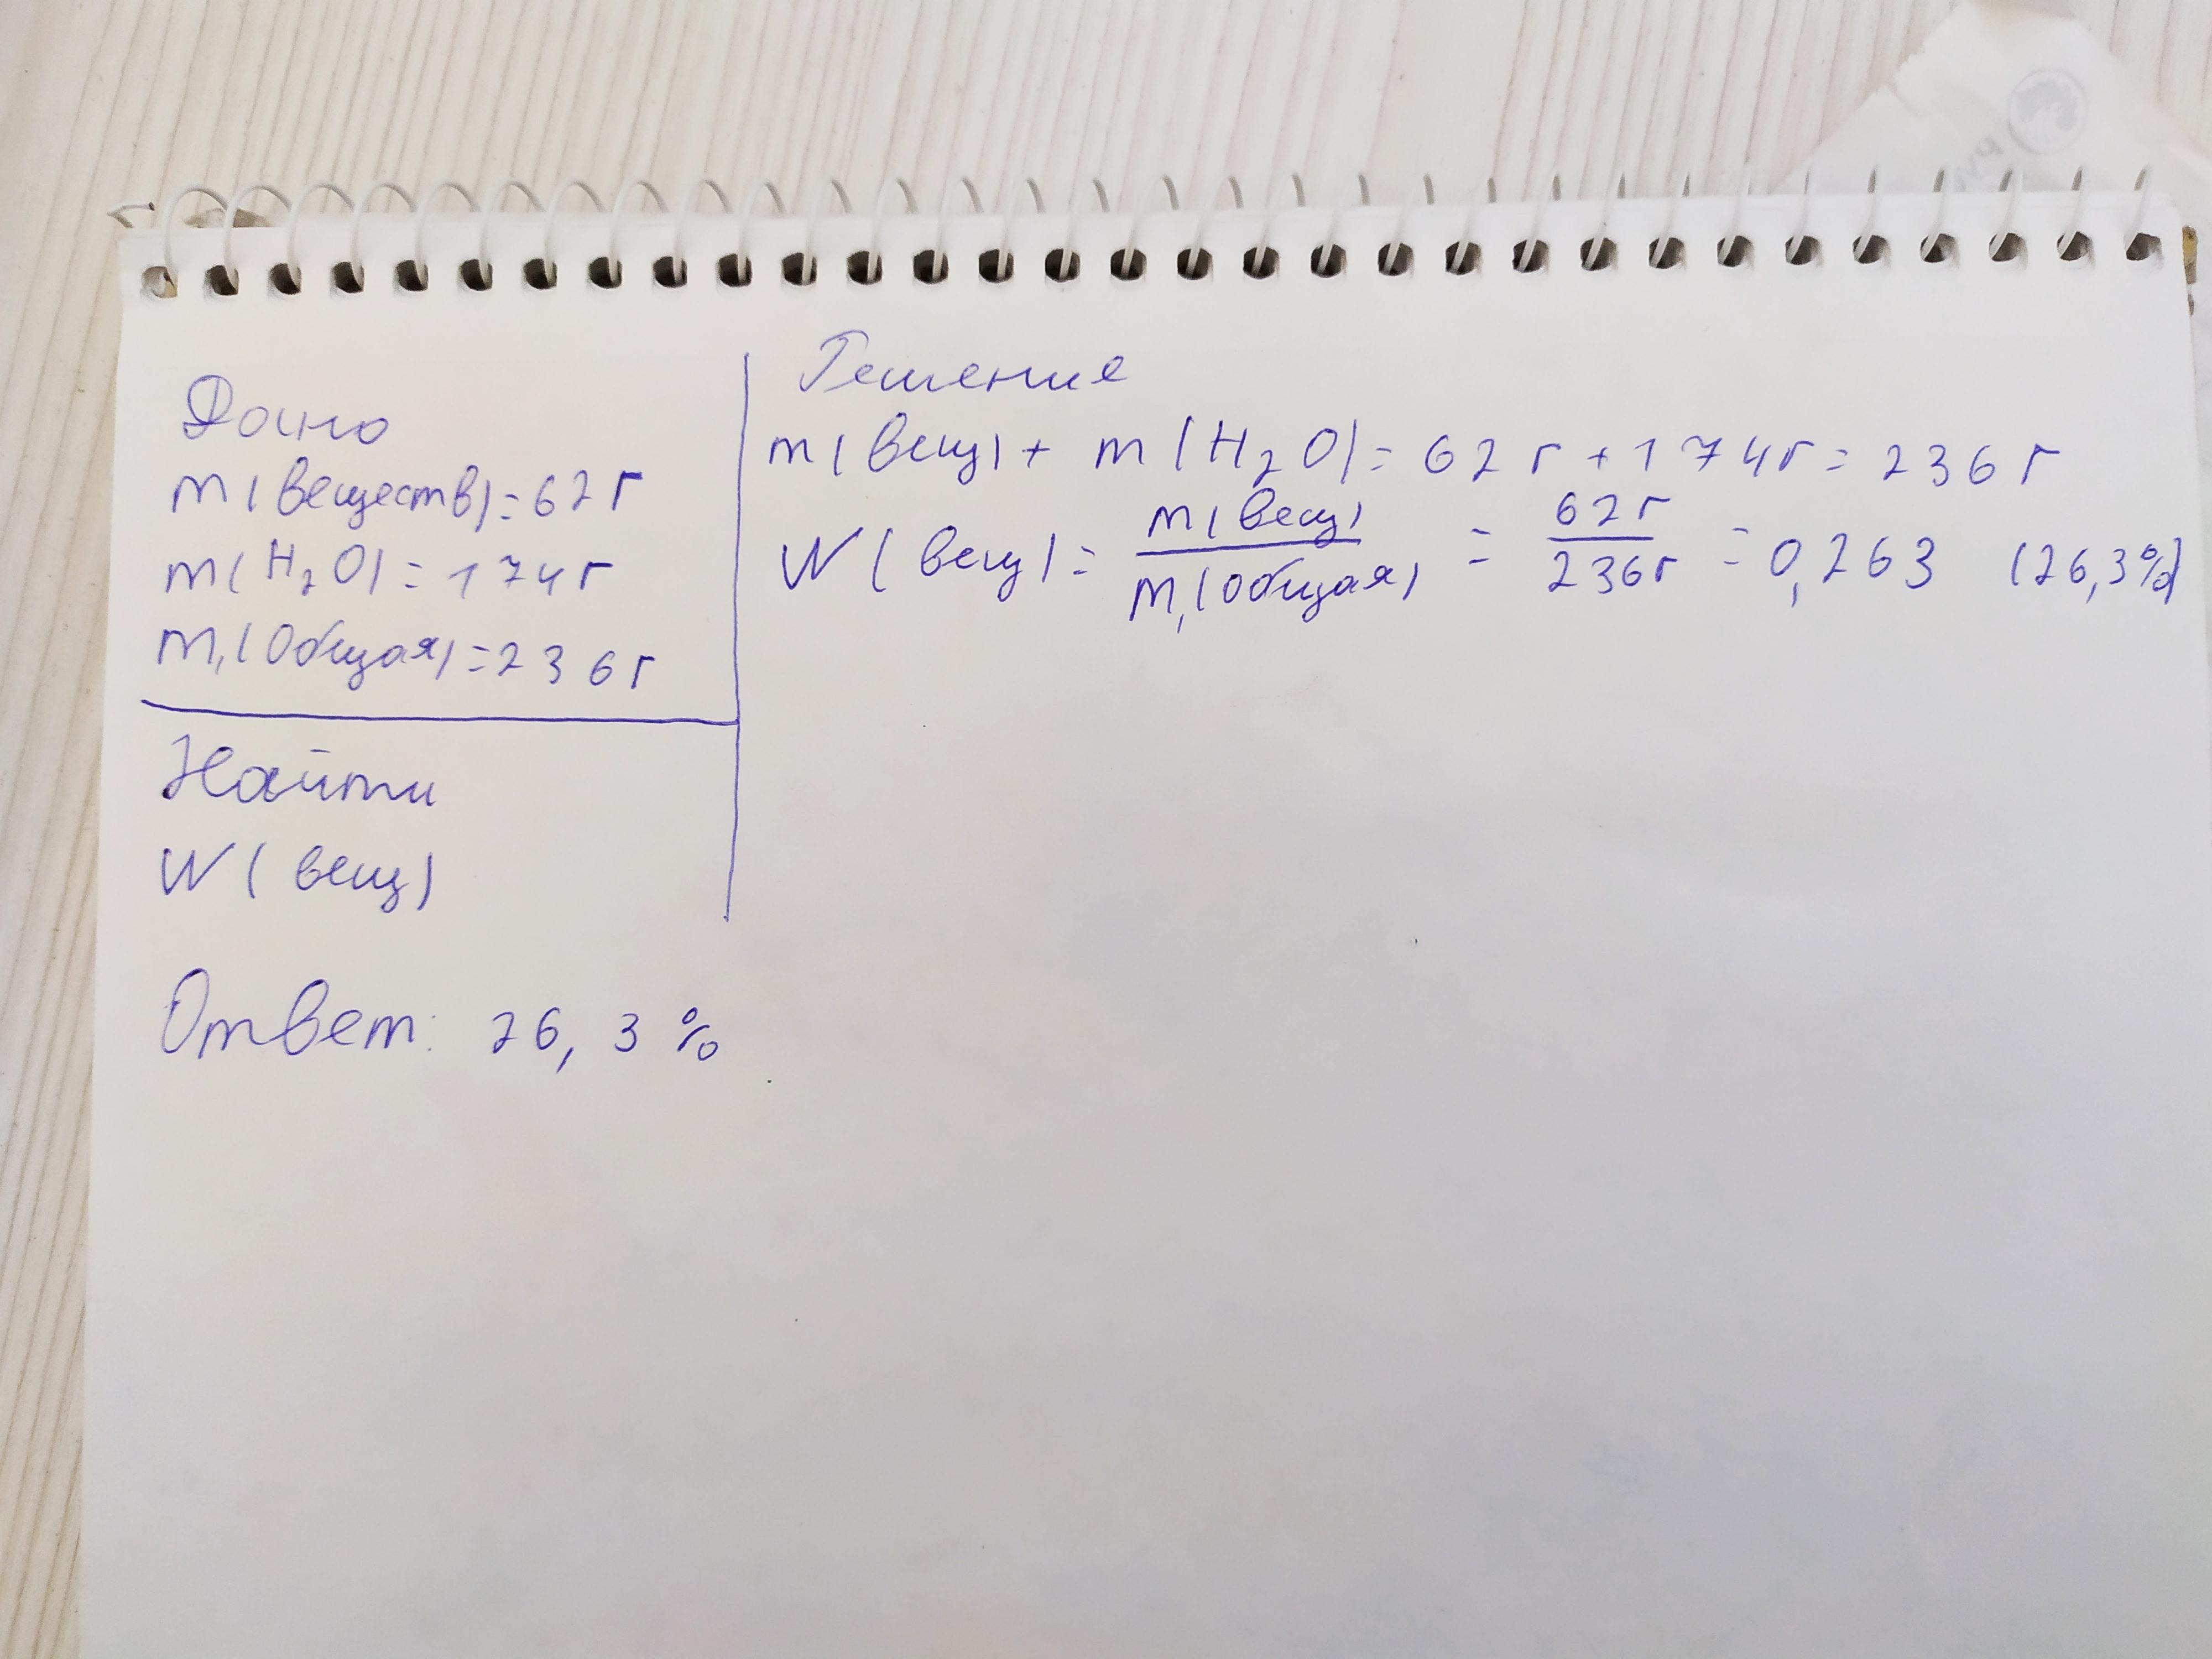 Дано
m(веществ)=62г
m(H₂O)=174г
m₁(общая)=236г
Найти
W(вещ)
Решение
m(вещ)+m(H₂O)=62г+174г=236г
W(вещ)=m(вещ)/m₁(общая)=62г/236г=0,263 (26,3%)
Ответ: 26,3%